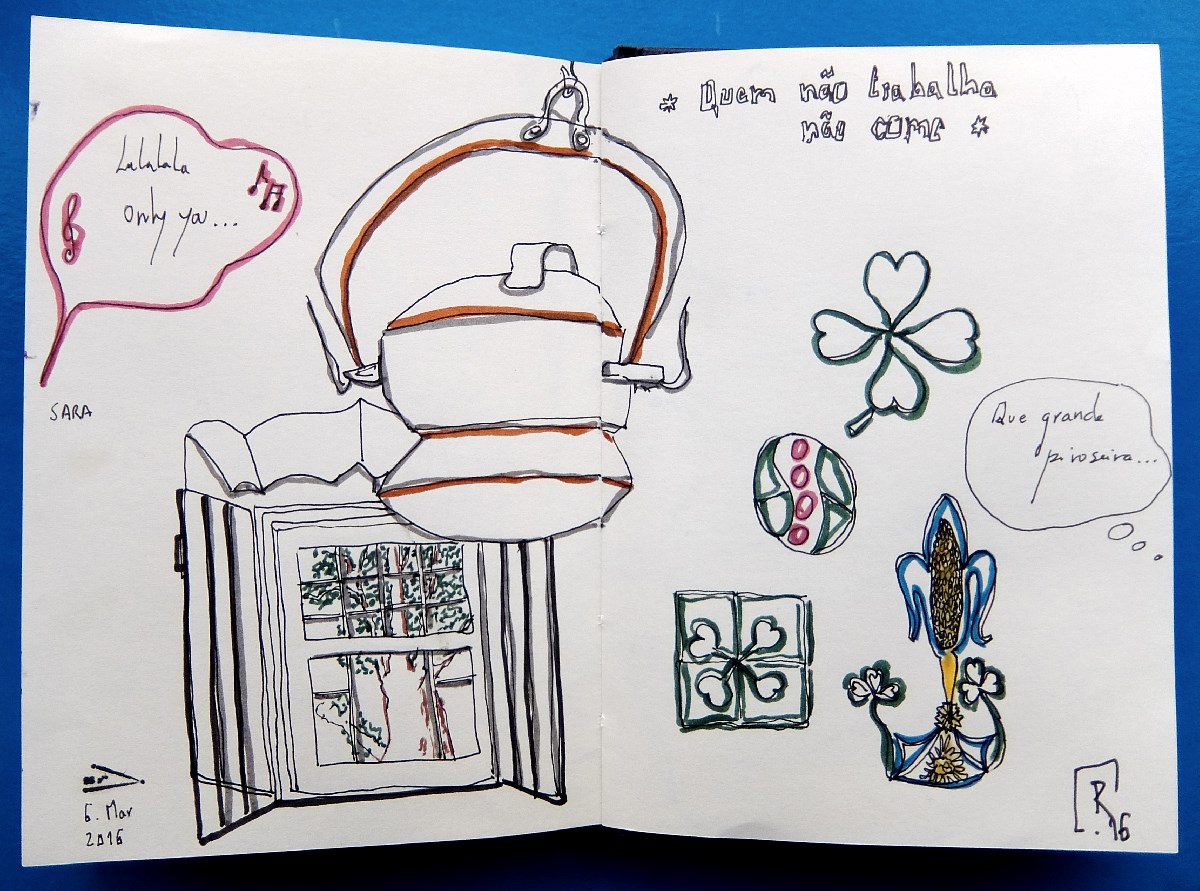 Lalalala
only you...
SARA
6. Mar
2016
* Quem não trabalha
não come *
Que grande
piroseira...
R.16